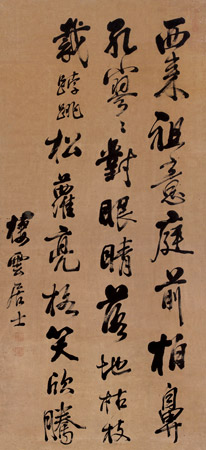 西來祖意庭前柏鼻
孔寥〻對眼睛落地枯枝
跳松蘿亮格笑欣騰
棲雲居士